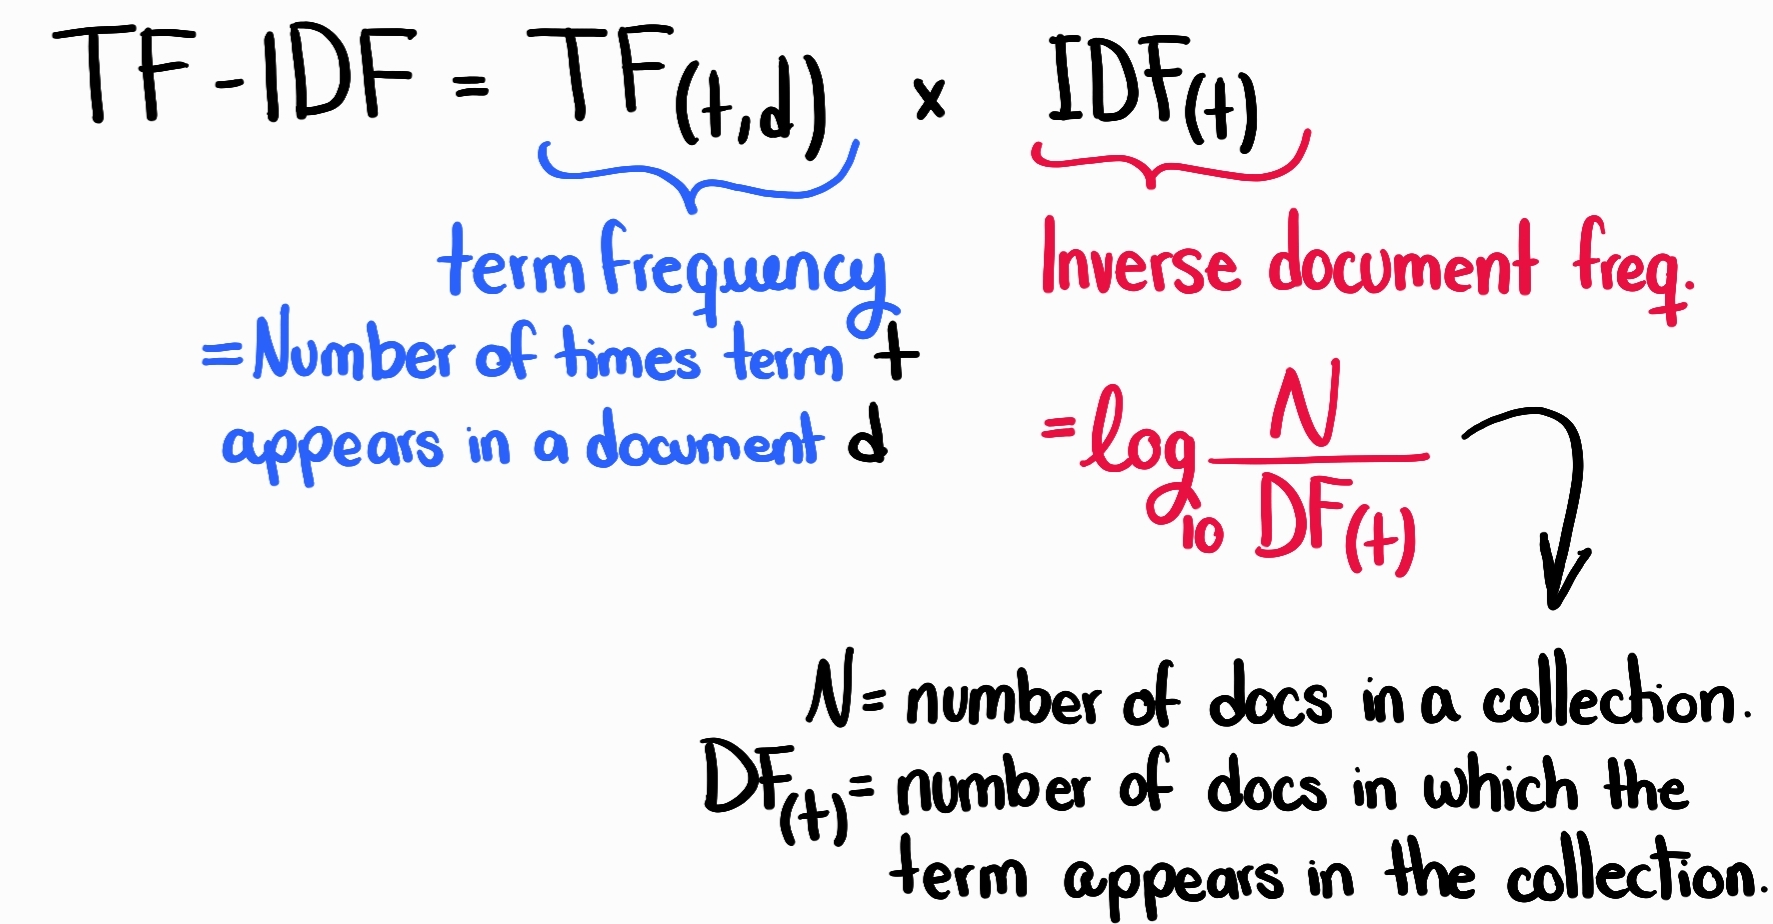 TF-IDF = TF(t,d) x IDF(t)
term frequency
= Number of times term t
appears in a document d
Inverse document freq.
= log10 N / DF(t)
N = number of docs in a collection.
DF(t) = number of docs in which the
term appears in the collection.